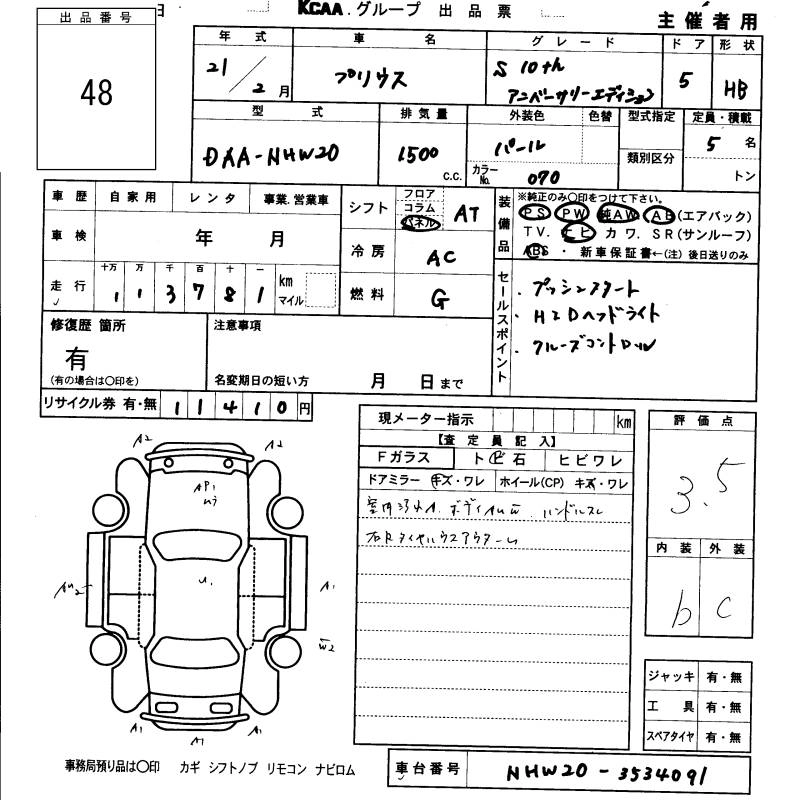 KCAA.グループ 出品票
主催者用
出品番号
48
年式 車名 グレード ドア 形状
21/2月 プリウス S 10th アニバーサリーエディション 5 HB
型式 排気量 外装色 色替 型式指定 定員・積載
DAA-NHW20 1500 c.c. パール カラーNo. 070 類別区分 5名 トン
車歴 自家用 レンタ 事業.営業車
車検 年 月
走行 十万 万 千 百 十 一
113781 km マイル
シフト フロア コラム パネル AT
冷房 AC
燃料 G
装備品
※純正のみ〇印をつけて下さい。
PS PW 純AW AB(エアバック)
TV. ナビ カワ. SR(サンルーフ)
ABS・新車保証書←(注)後日送りのみ
セールスポイント
・プッシュスタート
・HIDヘッドライト
・クルーズコントロール
修復歴 箇所
有
(有の場合は〇印を)
注意事項
名変期日の短い方 月 日まで
リサイクル券 有・無 11410円
現メーター指示 km
【査定員記入】
Fガラス トビ石 ヒビワレ
ドアミラー キズ・ワレ ホイール(CP) キズ・ワレ
評価点
3.5
内装 外装
b c
A2 A2
AP1
U1
A1
W2
A1 A1 A1
ジャッキ 有・無
工具 有・無
スペアタイヤ 有・無
事務局預り品は〇印 カギ シフトノブ リモコン ナビロム
車台番号 NHW20-3534091